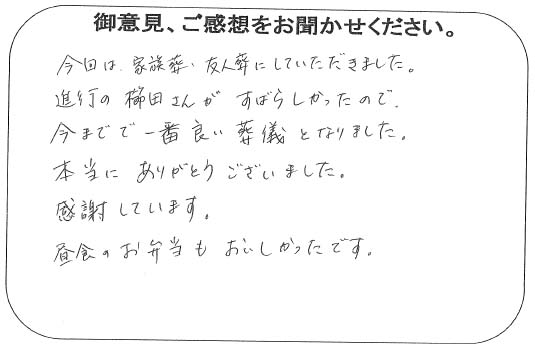 御意見、ご感想をお聞かせください。
今回は、家族葬・友人葬にしていただきました。
進行の櫛田さんが すばらしかったので、
今までで一番良い葬儀となりました。
本当に ありがとうございました。
感謝しています。
昼食のお弁当も おいしかったです。